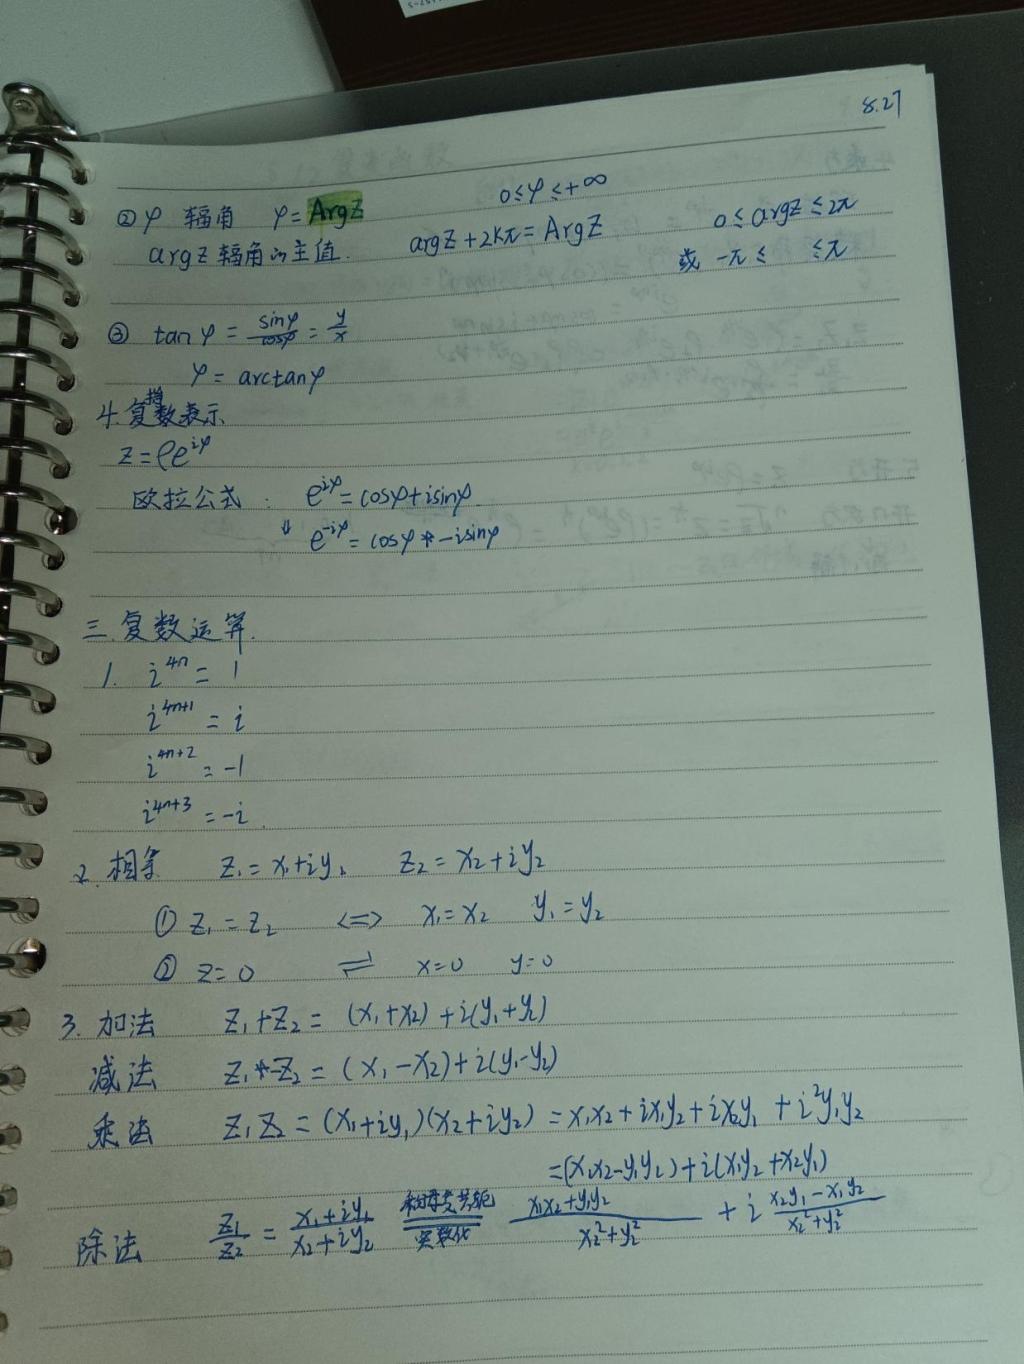 8.27
② φ 辐角 φ=ArgZ 0≤φ≤+∞
argz 辐角的主值. argZ+2kπ=ArgZ 0≤argZ≤2π
或 -π≤ ≤π
③ tanφ = sinφ/cosφ = y/x
φ = arctanφ
4. 复指数表示
z=ρe^{iφ}
欧拉公式: e^{iφ}=cosφ+isinφ.
⇓ e^{-iφ}=cosφ-isinφ
三.复数运算.
1. i^{4n} = 1
i^{4n+1} = i
i^{4n+2} = -1
i^{4n+3} = -i.
2. 相等 Z₁=x₁+iy₁ Z₂=x₂+iy₂
① Z₁=Z₂ <=> x₁=x₂ y₁=y₂
② z=0 ⇌ x=0 y=0
3. 加法 Z₁+Z₂=(x₁+x₂)+i(y₁+y₂)
减法 Z₁-Z₂=(x₁-x₂)+i(y₁-y₂)
乘法 Z₁Z₂=(x₁+iy₁)(x₂+iy₂)=x₁x₂+ix₁y₂+ix₂y₁+i²y₁y₂
=(x₁x₂-y₁y₂)+i(x₁y₂+x₂y₁)
除法 Z₁/Z₂ = (x₁+iy₁)/(x₂+iy₂) 共轭 实数化 (x₁x₂+y₁y₂)/(x₂²+y₂²) + i (x₂y₁-x₁y₂)/(x₂²+y₂²)